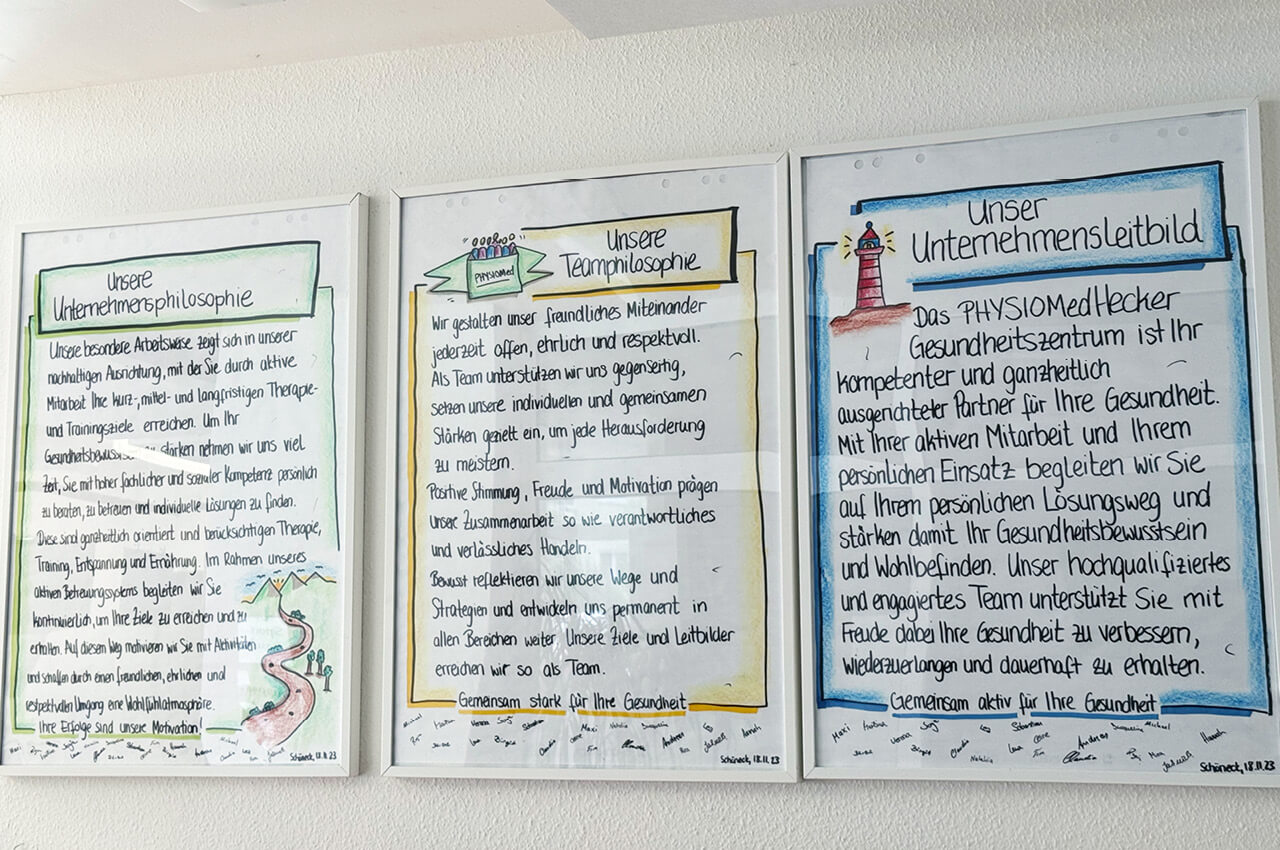 Unsere
Unternehmensphilosophie
Unsere besondere Arbeitsweise zeigt sich in unserer
nachhaltigen Ausrichtung, mit der Sie durch aktive
Mitarbeit Ihre kurz-, mittel- und langfristigen Therapie-
und Trainingsziele erreichen. Um Ihr
zu stärken nehmen wir uns viel
Zeit, Sie mit hoher fachlicher und sozialer Kompetenz persönlich
zu beraten, zu betreuen und individuelle Lösungen zu finden.
Diese sind ganzheitlich orientiert und berücksichtigen Therapie,
Training, Entspannung und Ernährung. Im Rahmen unseres
aktiven Betreuungssystems begleiten wir Sie
kontinuierlich, um Ihre Ziele zu erreichen und zu
erhalten. Auf diesem Weg motivieren wir Sie mit Aktivitäten
und schaffen durch einen freundlichen, ehrlichen und
respektvollen Umgang eine Wohlfühlatmosphäre.
Ihre Erfolge sind unsere Motivation!
Schöneck, 18.11.23
PHYSIOMed
Unsere
Teamphilosophie
Wir gestalten unser freundliches Miteinander
jederzeit offen, ehrlich und respektvoll.
Als Team unterstützen wir uns gegenseitig,
setzen unsere individuellen und gemeinsamen
Stärken gezielt ein, um jede Herausforderung
zu meistern.
Positive Stimmung, Freude und Motivation prägen
unsere Zusammenarbeit so wie verantwortliches
und verlässliches Handeln.
Bewusst reflektieren wir unsere Wege und
Strategien und entwickeln uns permanent in
allen Bereichen weiter. Unsere Ziele und Leitbilder
erreichen wir so als Team.
Gemeinsam stark für Ihre Gesundheit
Michael Verena Sebastian Maxi Natalia Jacqueline Hannah
Claudia Andreas
Schöneck, 18.11.23
Unser
Unternehmensleitbild
Das PHYSIOMedHecker
Gesundheitszentrum ist Ihr
kompetenter und ganzheitlich
ausgerichteter Partner für Ihre Gesundheit.
Mit Ihrer aktiven Mitarbeit und Ihrem
persönlichen Einsatz begleiten wir Sie
auf Ihrem persönlichen Lösungsweg und
stärken damit Ihr Gesundheitsbewusstsein
und Wohlbefinden. Unser hochqualifiziertes
und engagiertes Team unterstützt Sie mit
Freude dabei Ihre Gesundheit zu verbessern,
wiederzuerlangen und dauerhaft zu erhalten.
Gemeinsam aktiv für Ihre Gesundheit
Maxi Verena Sebastian Jacqueline Michael
Claudia Lena Andreas Hannah
Natalia
Schöneck, 18.11.23